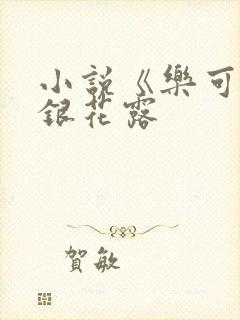 小說《樂可
銀花露
賀敏